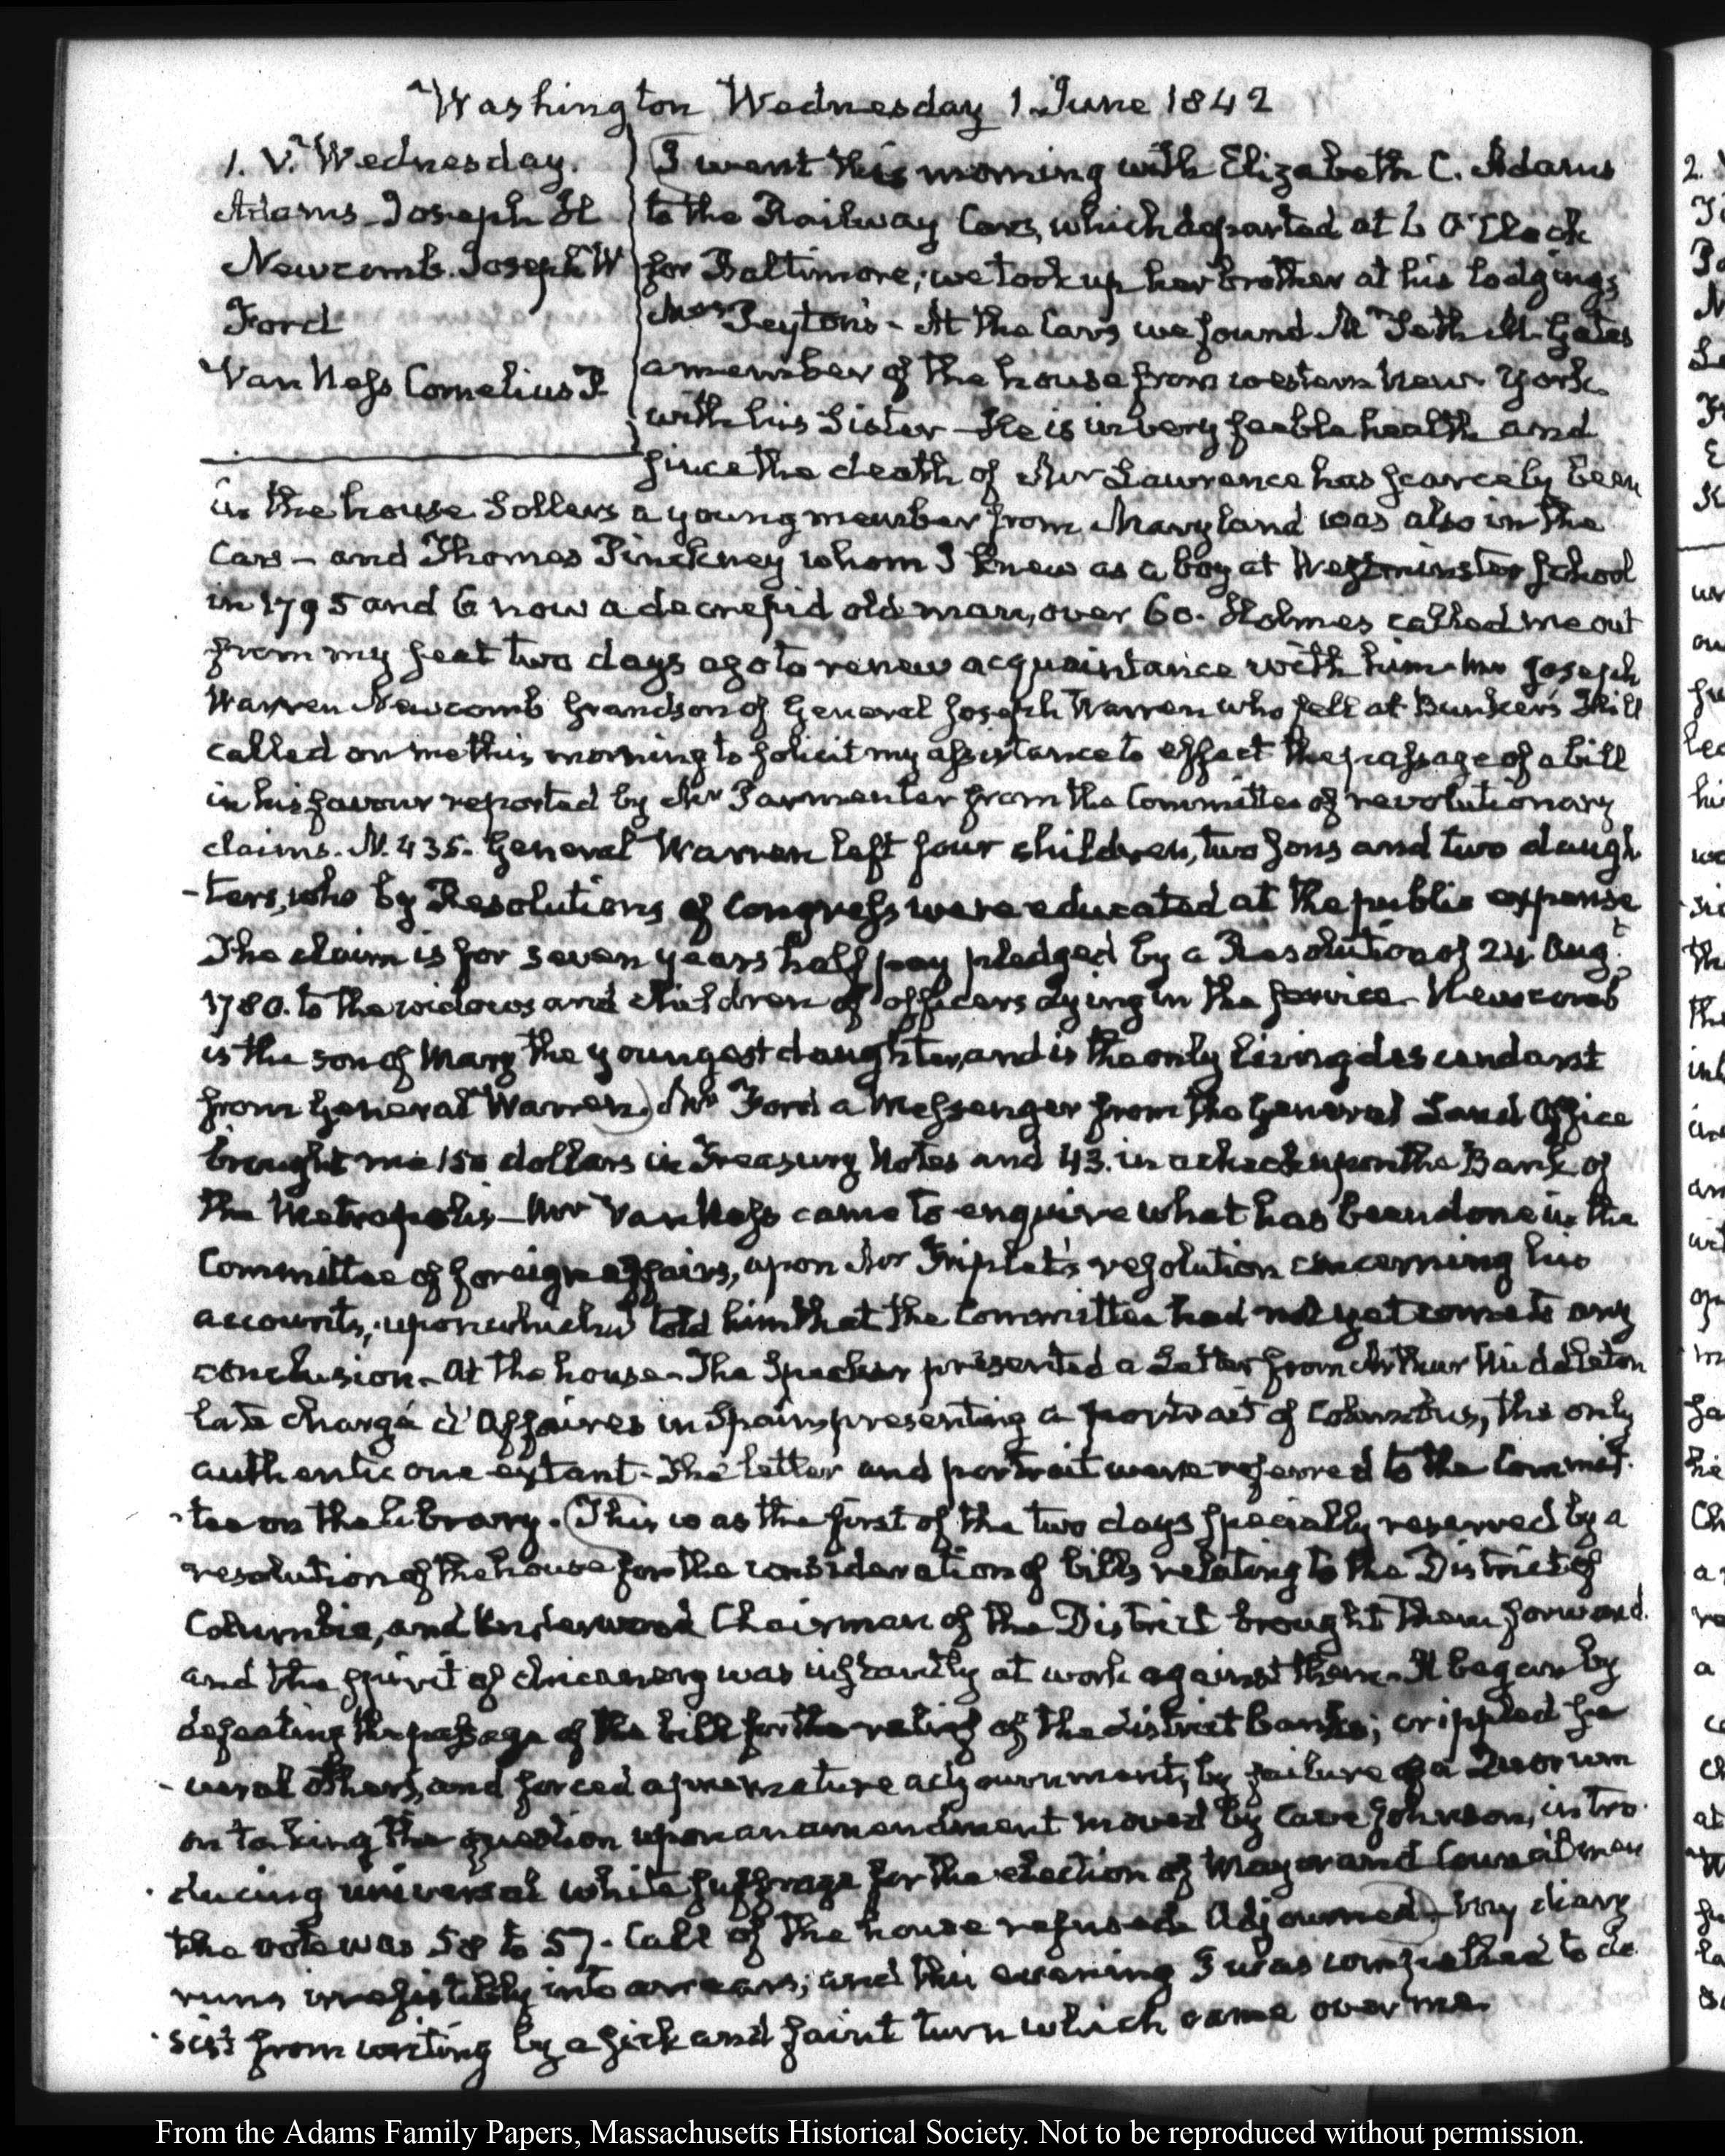 Washington Wednesday 1. June 1842
1. V. Wednesday.
Adams Joseph H
Newcomb. Joseph W
Ford
Van Ness Cornelius P.
I went this morning with Elizabeth C. Adams
to the Railway Cars, which departed at 6 O'Clock
for Baltimore; we took up her brother at his lodgings
Mrs Peyton's - At the Cars we found Mr Seth M. Gates
a member of the house from western New-York
with his Sister - He is in very feeble health and
since the death of Mr Lawrence has scarcely been
in the house. Sollers a young member from Maryland was also in the
Cars - and Thomas Pinckney whom I knew as a boy at Westminster School
in 1795 and 6 now a decrepid old man, over 60. Holmes called me out
from my seat two days ago to renew acquaintance with him - Mr Joseph
Warren Newcomb Grandson of General Joseph Warren who fell at Bunker's Hill
called on me this morning to solicit my assistance to effect the passage of a bill
in his favour reported by Mr Parmenter from the Committee of revolutionary
claims. N. 435. General Warren left four children, two sons and two daugh
-ters, who by Resolutions of Congress were educated at the public expense
The claim is for seven years half pay pledged by a Resolution of 24. Augt.
1780. to the widows and children of officers dying in the service - Newcomb
is the son of Mary the youngest daughter, and is the only living descendant
from General Warren.) Mr Ford a Messenger from the General Land Office
brought me 150 dollars in Treasury Notes and 43. in a check upon the Bank of
the Metropolis - Mr Van Ness came to enquire what has been done in the
Committee of foreign affairs, upon Mr Triplett's resolution concerning his
accounts; upon which I told him that the Committee had not yet come to any
conclusion - At the house - The Speaker presented a Letter from Arthur Middleton
late chargé d'Affaires in Spain, presenting a portrait of Columbus, the only
authentic one extant - The letter and portrait were referred to the Commit-
-tee on the library. (This was the first of the two days specially reserved by a
resolution of the house for the consideration of bills relating to the District of
Columbia, and Underwood Chairman of the District brought them forward.
and the spirit of chicanery was instantly at work against them - It began by
defeating the passage of the bill for the relief of the district banks; crippled se
-veral others, and forced a premature adjournment, by failure of a Quorum
on taking the question upon an amendment moved by Cave Johnson, intro-
-ducing universal white suffrage for the election of Mayor and Councilmen
the vote was 58 to 57. Call of the house refused. Adjourned) - My diary
runs irresistibly into arrears; and this evening I was compelled to de
-sist from writing by a sick and faint turn which came over me.
From the Adams Family Papers, Massachusetts Historical Society. Not to be reproduced without permission.